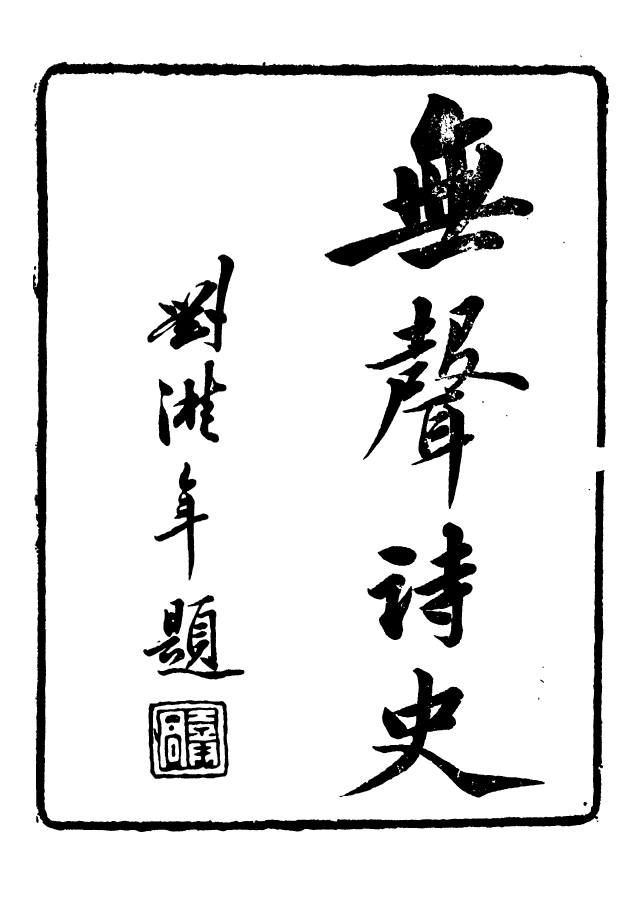 無聲詩史
劉溎年題